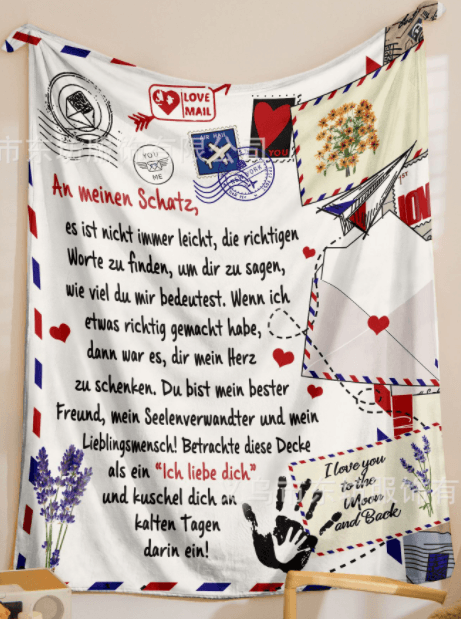 LOVE
MAIL
AIR MAIL
YOU
ME
YOU
An meinen Schatz,
es ist nicht immer leicht, die richtigen
Worte zu finden, um dir zu sagen,
wie viel du mir bedeutest. Wenn ich
etwas richtig gemacht habe,
dann war es, dir mein Herz
zu schenken. Du bist mein bester
Freund, mein Seelenverwandter und mein
Lieblingsmensch! Betrachte diese Decke
als ein “Ich liebe dich”
und kuschel dich an
kalten Tagen
darin ein!
I love you
to the
Moon
and Back